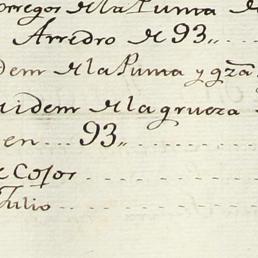 orregos de la Puma de
Arredro de 93,, ....
idem de la Puma y gza
uidem de la grueza
en ... 93,, ......
e Cosor ........
Julio ........